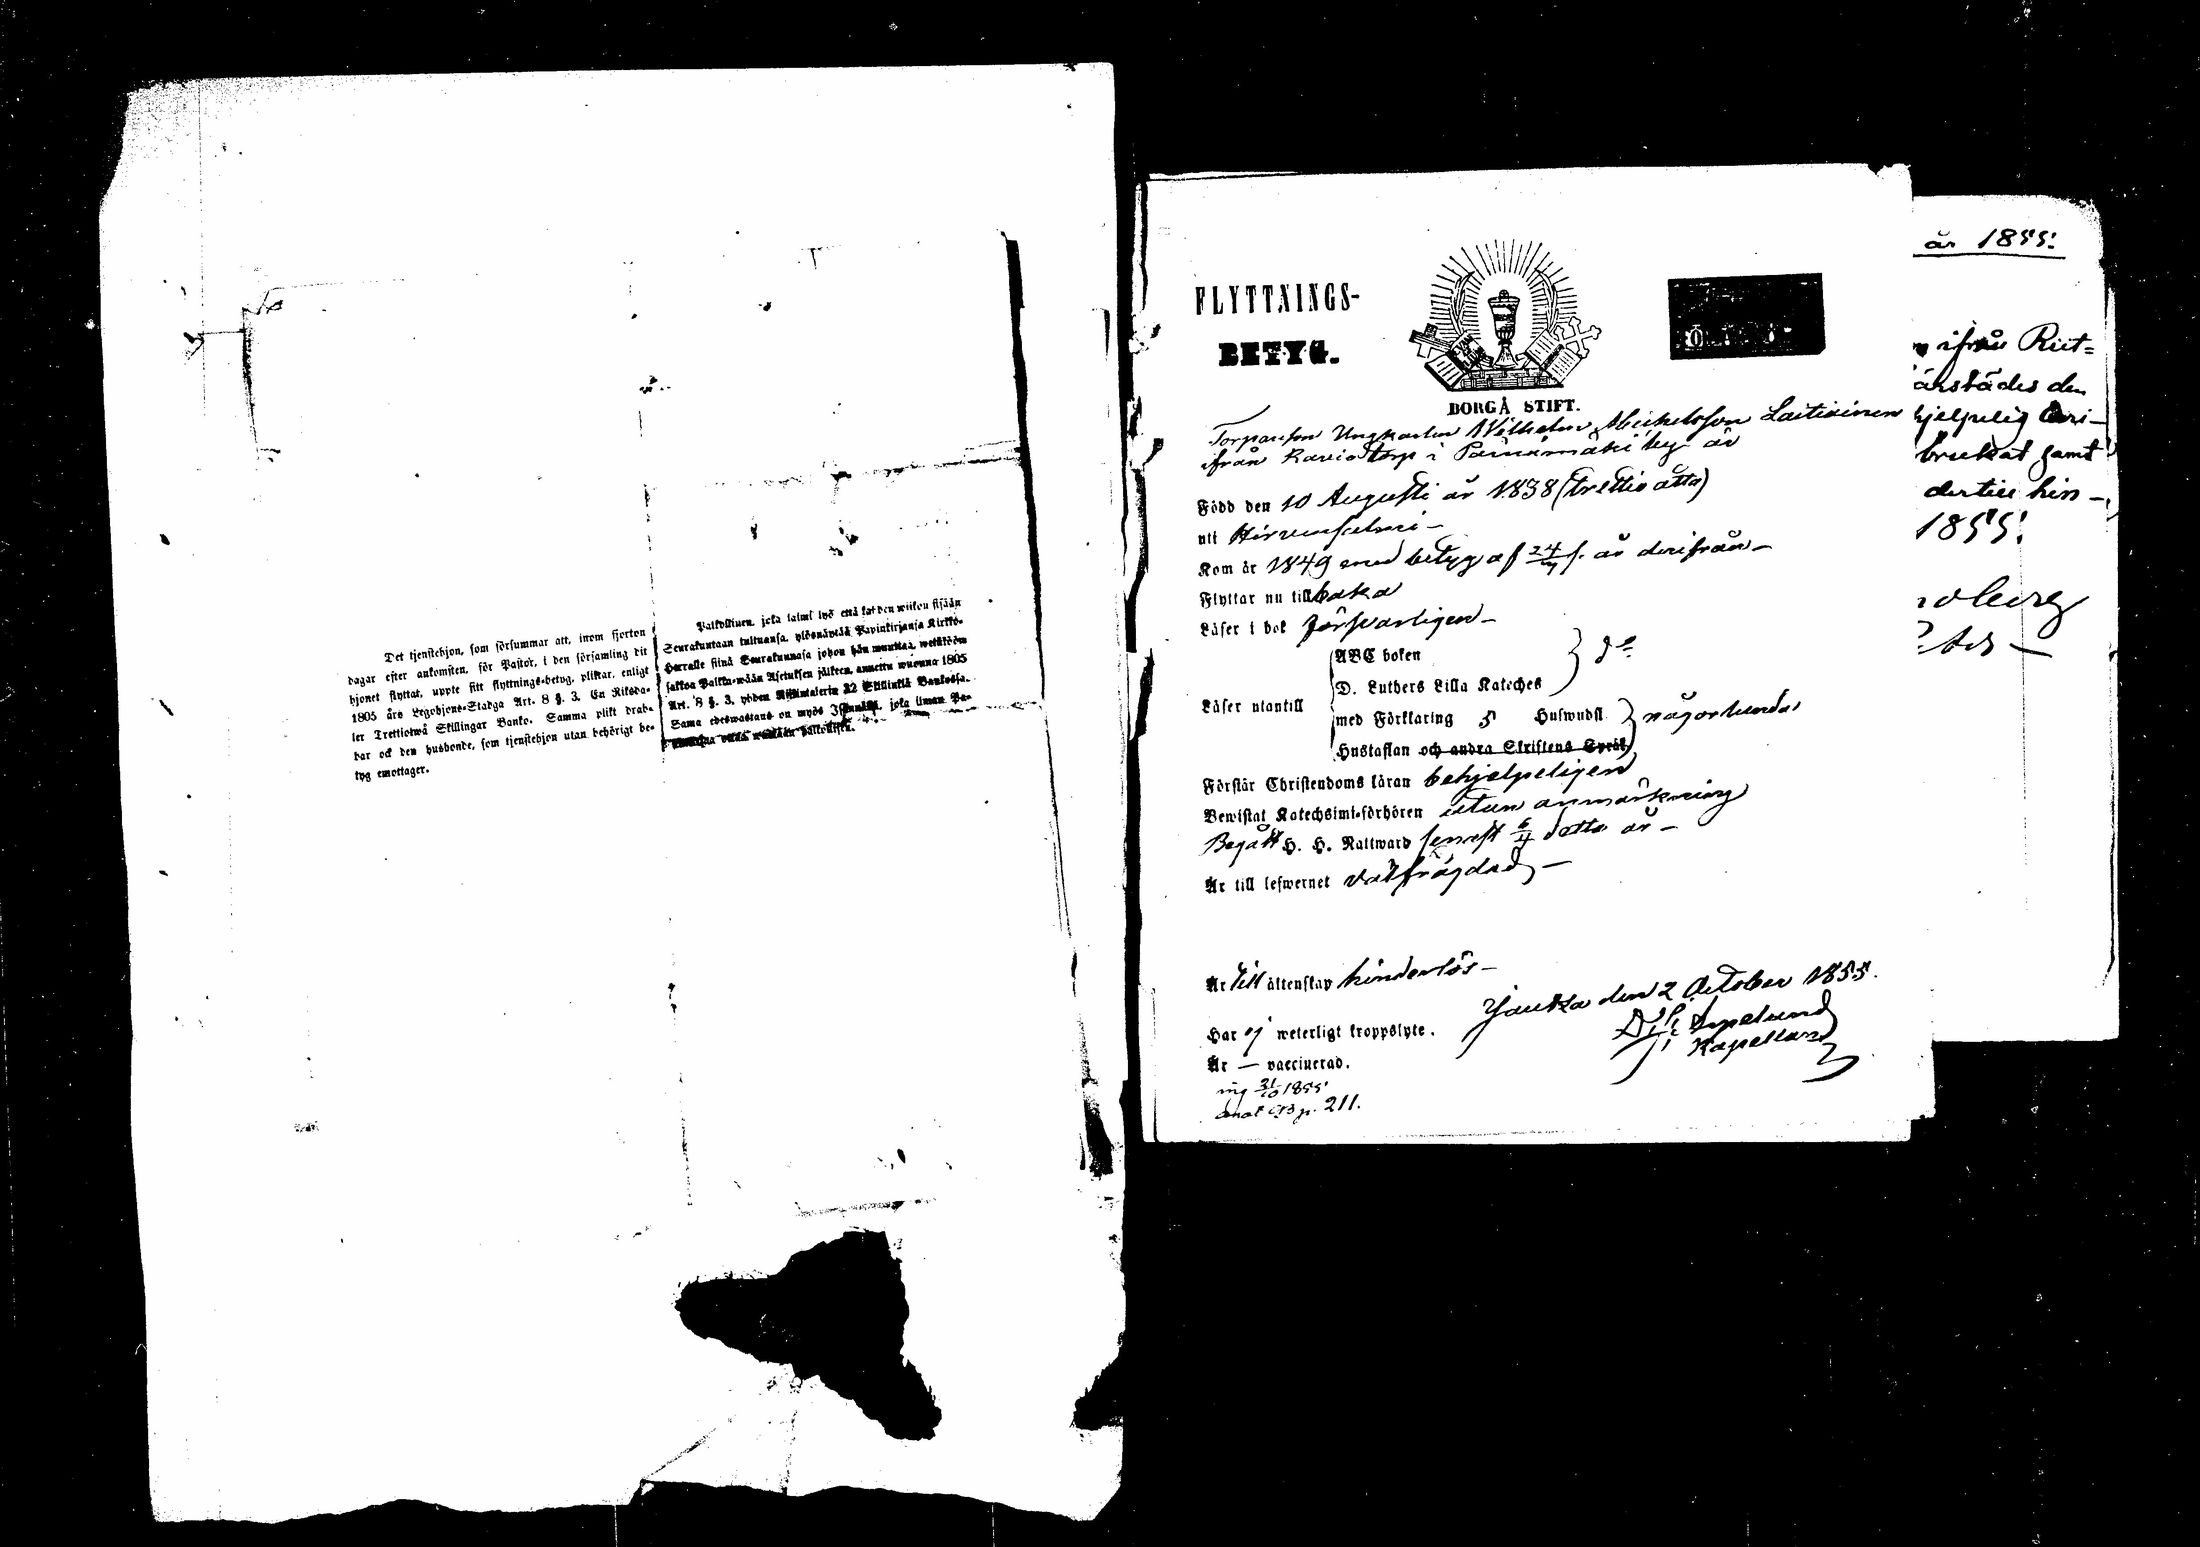 Det tjenstehjon, som försummar att, inom fjorton
dagar efter ankomsten, för Pastor, i den församling dit
hjonet flyttat, uppte sitt flyttnings-betyg, pliktar, enligt
1805 års Legohjons-Stadga Art. 8 §. 3. En Riksda-
ler Trettiotwå Skillingar Banko. Samma plikt drab-
bar ock den husbonde, som tjenstehjon utan behörigt be-
tyg emottager.
Palkollinen, joka laimi lyö että kahden wiikon sisään
Seurakuntaan tultuansa, ylösnäyttää Papinkirjansa Kirkko-
Herralle siinä Seurakunnasa johon hän muuttaa, wetäköön
sakkoa Palkka-wään Asetuksen jälkeen, annettu wuonna 1805
Art. 8 §. 3. yhden Riksintalerin 32 Skillinkiä Bankossa.
Sama edeswastaus on myös Isännällä, joka ilman Pa-
palkollisen.
FLYTTNINGS-
BETYG.
BORGÅ STIFT.
Torparson Ungkarlen Wilhelm Michelsson Laitinen
ifrån Ravio torp i Painämäki by är
Född den 10 Augusti år 1838 (trettio åtta)
uti Hirvensalmi -
Kom år 1849 med betyg af 24/7 s. år derifrån -
Flyttar nu till baka
Läser i bok försvarligen -
ABC boken
D. Luthers Lilla Kateches
do
Läser utantill
med Förklaring 5 Huswudst.
Hustaflan och andra Skriftens Språk
någorlunda
Förstår Christendoms läran behjelpeligen
Bewistat Katechsimi-förhören utan anmärkning
Begått H. H. Nattward senast 6/4 detta år -
Är till lefwernet välfrägdad -
Är till äktenskap hinderlös -
Jautka den 2 October 1855.
Har ej weterligt kroppslyte.
Kapellan
Är — vaccinerad.
ing 31/10 1855
p. 211.
år 1855.
ifrån Rist-
därstädes den
hjelpelig Chri-
brukat samt
dertill hin-
1855.